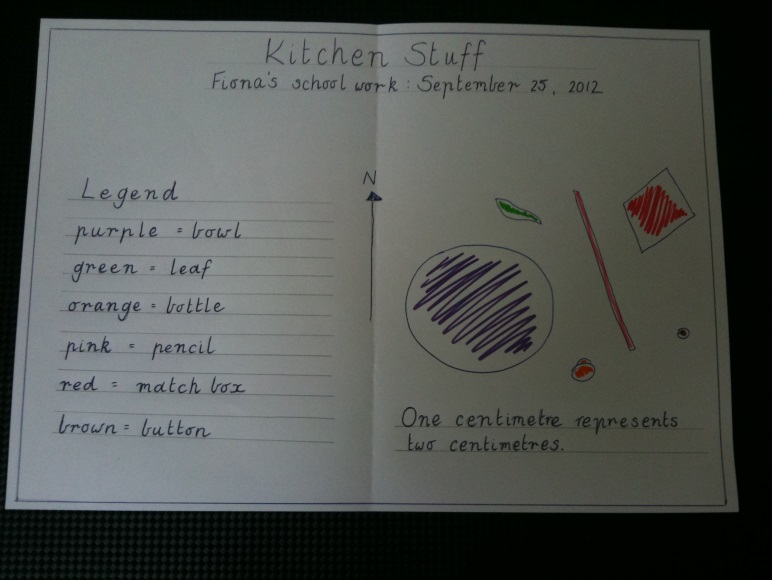 Kitchen Stuff
Fiona's school work : September 25, 2012
Legend
purple = bowl
green = leaf
orange = bottle
pink = pencil
red = match box
brown = button
N
One centimetre represents
two centimetres.